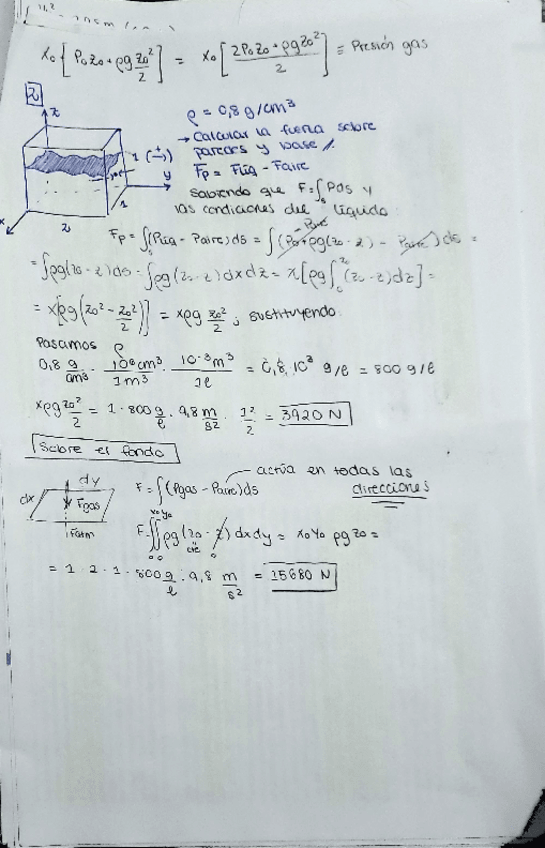 x₀[P₀z₀ + ρg z₀²/2] = x₀[2P₀z₀ + ρgz₀²/2] ≡ Presión gas
2
z
ρ = 0,8 g/cm³
→ Calcular la fuerza sobre
paredes y base
1 (→)
y
Fp = Fliq - Faire
1
Sabiendo que F = ∫ₛ Pds y
x
2
las condiciones del líquido:
Fp = ∫ₛ(Pliq - Paire)ds = ∫(P₀ + ρg(z₀ - z) - Paire)ds =
Paire
= ∫ρg(z₀ - z)ds = ∫ρg(z₀ - z)dxdz = x[ρg∫₀^z₀(z₀ - z)dz] =
= x[ρg(z₀² - z₀²/2)] = xρg z₀²/2; sustituyendo:
Pasamos ρ
0,8 g/cm³ · 10⁶cm³/1m³ · 10⁻³m³/1ℓ = 0,8·10³ g/ℓ = 800 g/ℓ
xρgz₀²/2 = 1·800 g/ℓ · 9,8 m/s² · 1²/2 = 3920 N
Sobre el fondo
dy
dx
Fgas
Fatm
F = ∫(Pgas - Paire)ds
actúa en todas las
direcciones
F = ∫₀^x₀∫₀^y₀ ρg(z₀ - z)dxdy = x₀y₀ρgz₀ =
cte
0
= 1·2·1·800 g/ℓ · 9,8 m/s² = 15680 N